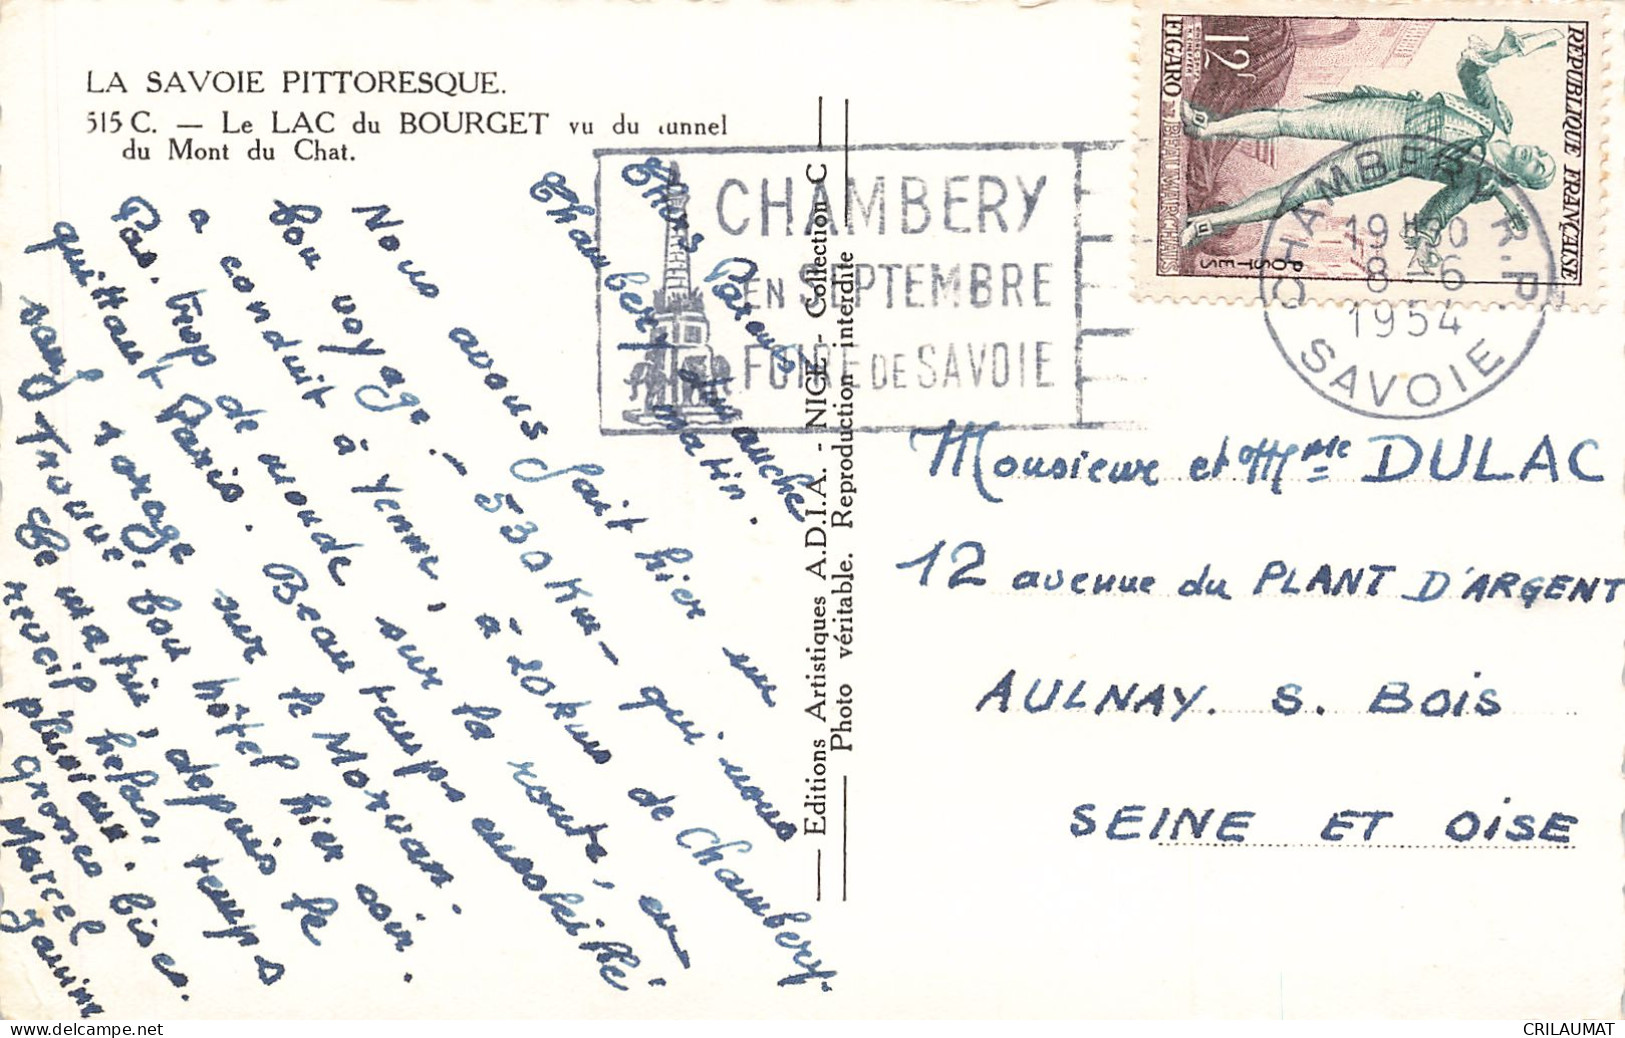 LA SAVOIE PITTORESQUE.
515 C. — Le LAC du BOURGET vu du tunnel
du Mont du Chat.
RÉPUBLIQUE FRANÇAISE
12F
FIGARO DE BEAUMARCHAIS
POSTES
CHAMBERY
EN SEPTEMBRE
FOIRE DE SAVOIE
CHAMBERY R.P.
19H30
8-6
1954
SAVOIE
Chambery Dimanche matin.
Chers Parents
Nous avons fait hier un
bon voyage. - 530 km - qui nous
a conduit à Yenne, à 20 kms de Chambery.
Pas trop de monde sur la route, en
quittant Paris. Beau temps ensoleillé
sauf 1 orage sur le Morvan.
Trouvé bon hôtel hier soir.
Ce matin, depuis le
reveil helas, temps
pluvieux. bises.
grosses
Marcel
Janine
Editions Artistiques A.D.I.A. - NICE - Collection C
Photo véritable. Reproduction interdite
Monsieur et Mme DULAC
12 avenue du PLANT D'ARGENT
AULNAY. S. BOIS
SEINE ET OISE
CRILAUMAT